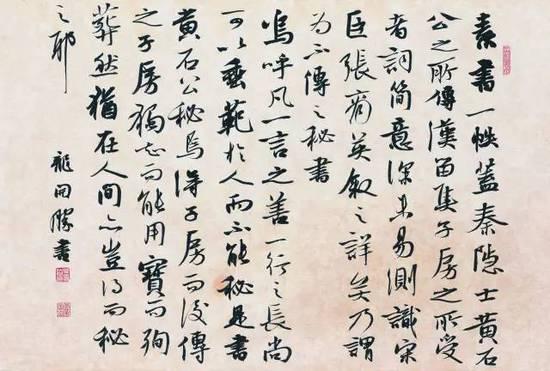 素書一帙蓋秦隐士黃石
公之所傳漢留侯子房之所受
者詞簡意深未易測識宋
臣張商英叙之詳矣乃謂
為不傳之秘書
嗚呼凡一言之善一行之長尚
可以垂範於人而不能秘是書
黃石公秘焉得子房而後傳
之子房獨知而能用寶而殉
葬然猶在人間亦豈得而秘
之耶
龍開勝書